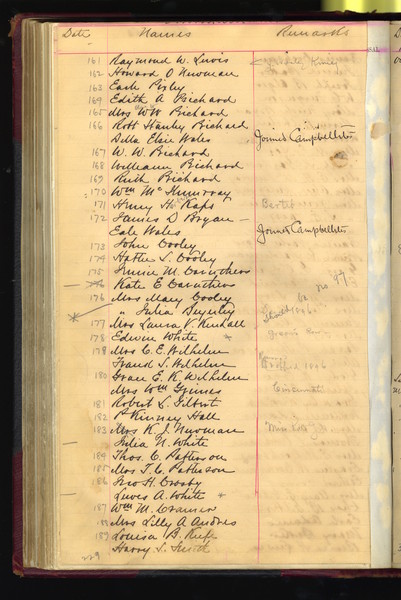 Date Names Remarks
161 Raymond W. Lewis
162 Howard O Newman
163 Earl Pixley
164 Edith A Prichard
165 Mrs W W Prichard
166 Robt Stanley Prichard
Della Elsie Wales Joined Campbellites
167 W. W. Prichard
168 William Prichard
169 Ruth Prichard
170 Wm Mc
171 Henry H. Raps Bertie
172 James D Bryan
Earl Wales Joined Campbellites
173 John Cooley
174 Hattie S. Cooley
175 M. Caruthers no 97
Kate E Caruthers
176 Mrs Mary Cooley
" Julia
177 Mrs Laura V. Kendall
178 Edwin White
179 Mrs C. E. Wilhelm
Frank S. Wilhelm
180 E. K. Wilhelm
Mrs Wm Grimes Cincinnati
181 Robert L. Gilbert
182 P Kinney Hall
183 Mrs K. J. Newman
Julia N. White
184 Thos. C. Patterson
185 Mrs T. C. Patterson
186 Jno H Crosby
A. White
187 Wm M. Cramer
188 Mrs Lilly A Andres
189 Louisa B. Keefe
Harry S. Smith